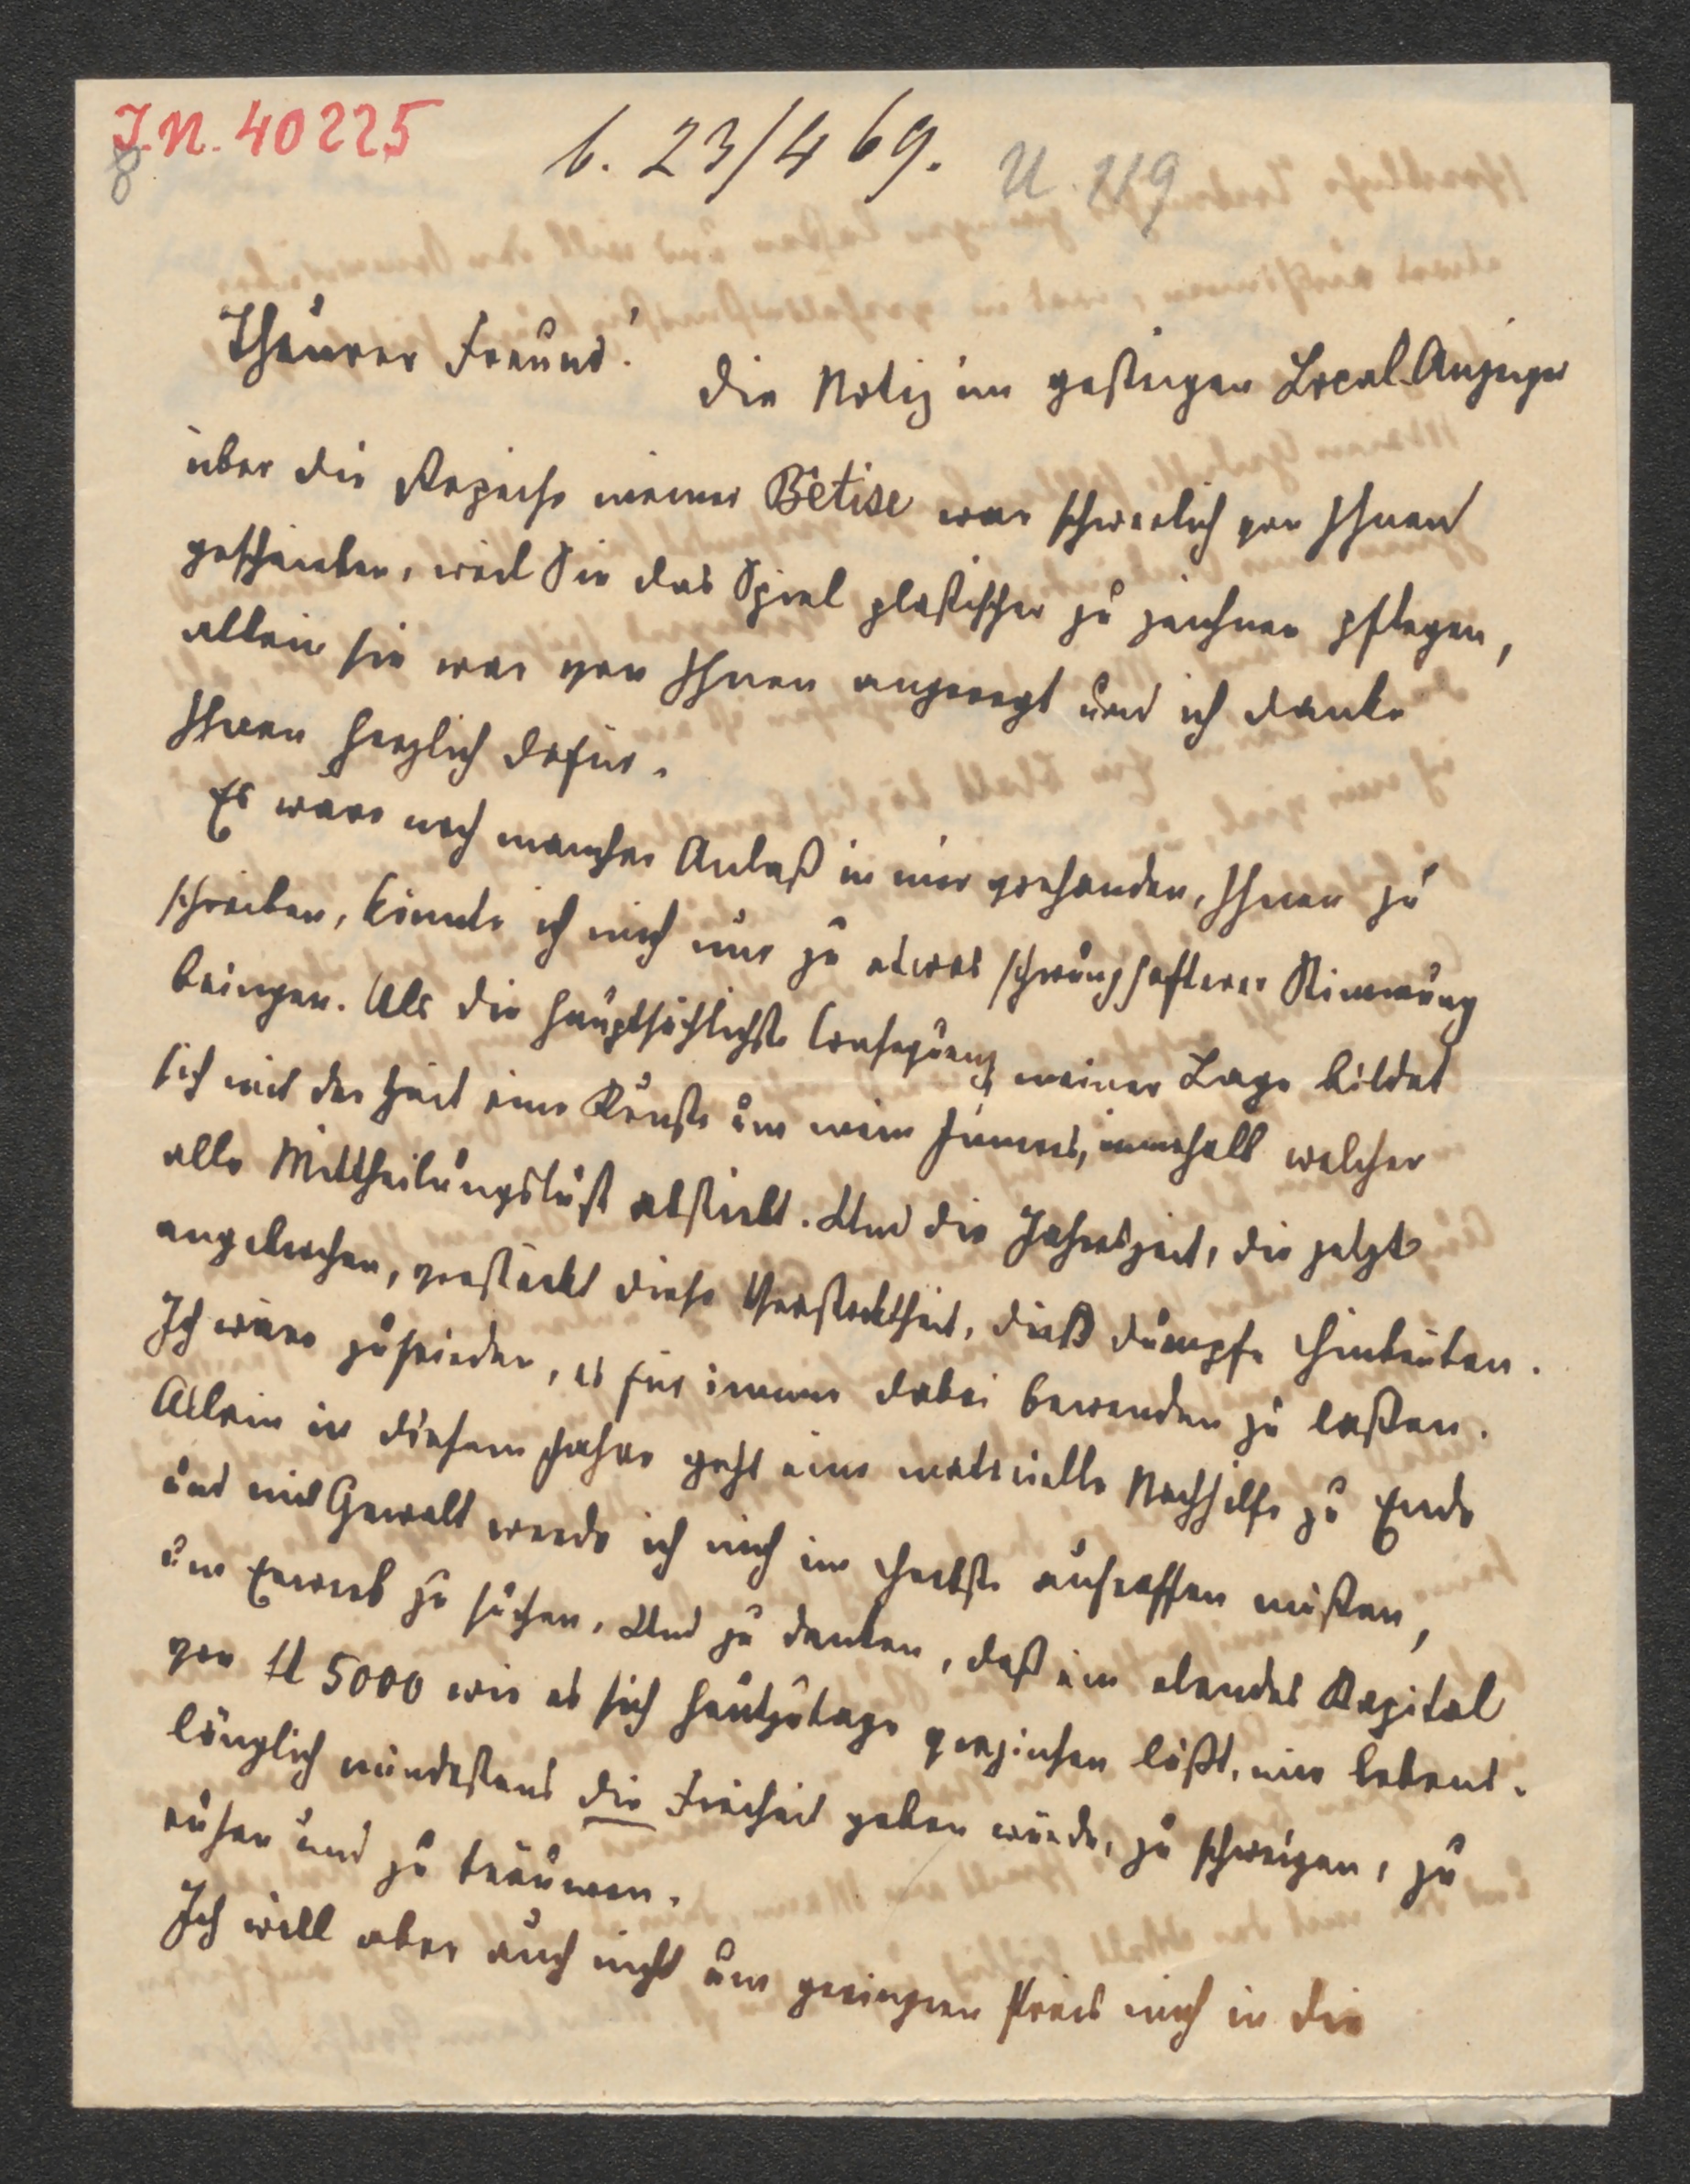 I.N. 40225
8
b. 23/4 69.
U. 219
Theurer Freund!
Die Notiz im gestrigen Local-Anzeiger
über die Reprise meiner Bêtise war schwerlich von Ihnen
geschrieben, weil Sie das Spiel plastischer zu zeichnen pflegen,
allein sie war von Ihnen angeregt und ich danke
Ihnen herzlich dafür.
Es wäre noch mancher Anlaß in mir vorhanden, Ihnen zu
schreiben, könnte ich mich nur zu etwas schwunghafterer Stimmung
bringen. Als die hauptsächlichste Consequenz meiner Lage bildet
sich mit der Zeit eine Kruste um mein Inneres, innerhalb welcher
alle Mittheilungslust abstirbt. Und die Jahreszeit, die jetzt
angebrochen, verstärkt diese Verstocktheit, dieß dumpfe Hinbrüten.
Ich wäre zufrieden, es für immer dabei bewenden zu laßen.
Allein in diesem Jahre geht eine materielle Nachhilfe zu Ende
und mit Gewalt werde ich mich im Herbste aufraffen müßen,
um Erwerb zu suchen. Und zu denken, daß ein elendes Kapital
von fl 5000 wie es sich heutzutage verzinsen läßt, mir lebens-
länglich mindestens die Freiheit geben würde, zu schweigen, zu
ruhen und zu träumen.
Ich will aber auch nicht um geringeren Preis mich in die